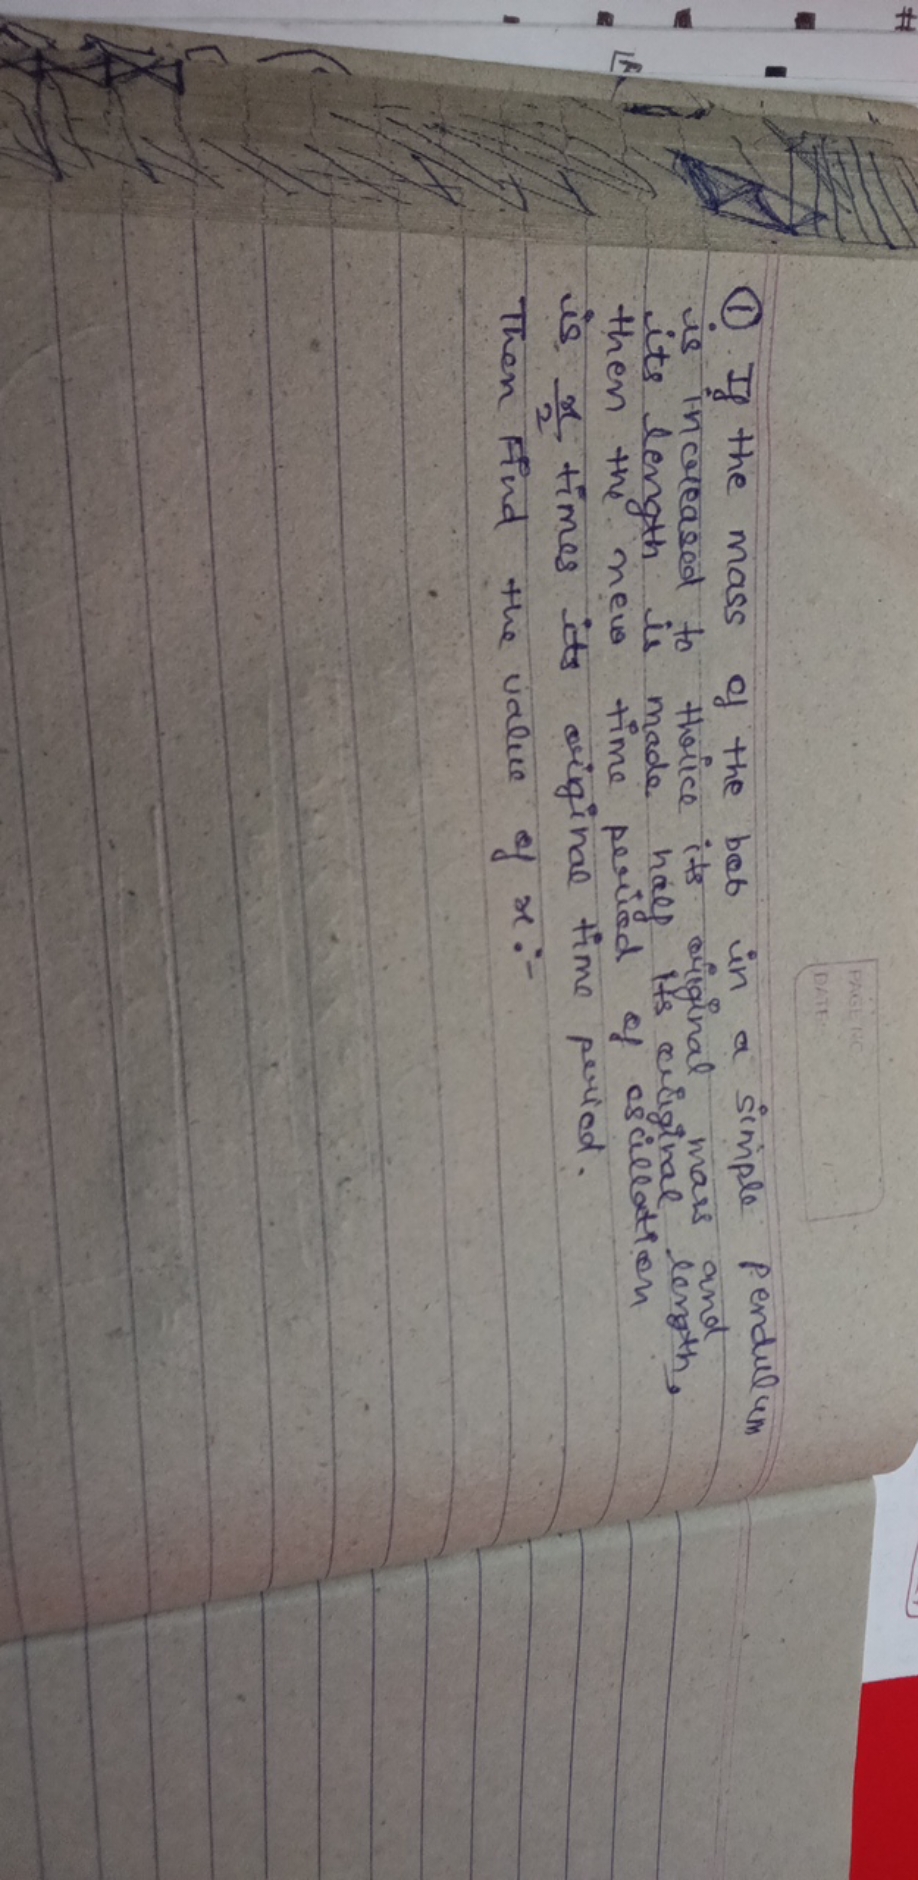 PAGE NO.
DATE:
① If the mass of the bob in a simple pendulum
is increased to thrice its original mass and
its length is made half its original length,
then the new time period of oscillation
is x/2 times its original time period.
Then Find the value of x :-